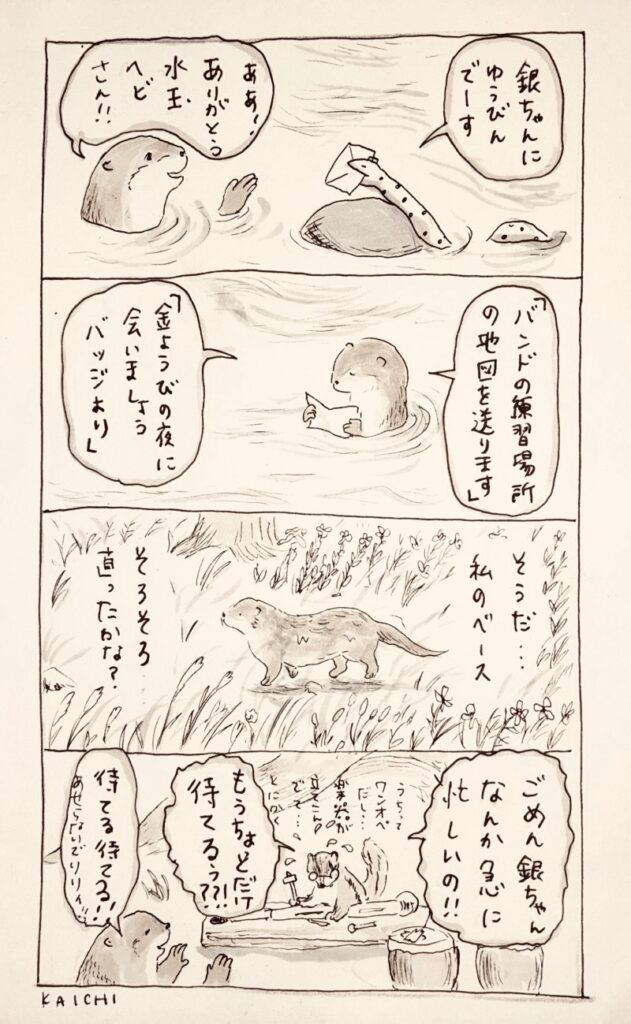 銀ちゃんに
ゆうびん
でーす
ああ〜
ありがとう
水玉
ヘビ
さん!!
「バンドの練習場所
の地図を送ります」
「金ようびの夜に
会いましょう
バッジより」
そうだ…
私のベース
そろそろ…
直ったかな?
ごめん銀ちゃん
なんか急に
忙しいの!!
うちって
ワンオペ
だし…
楽器が
立てこん
でて…
とにかく
もうちょとだけ
待てるぅ??!!
待てる待てる!!
あせらないで
KAICHI